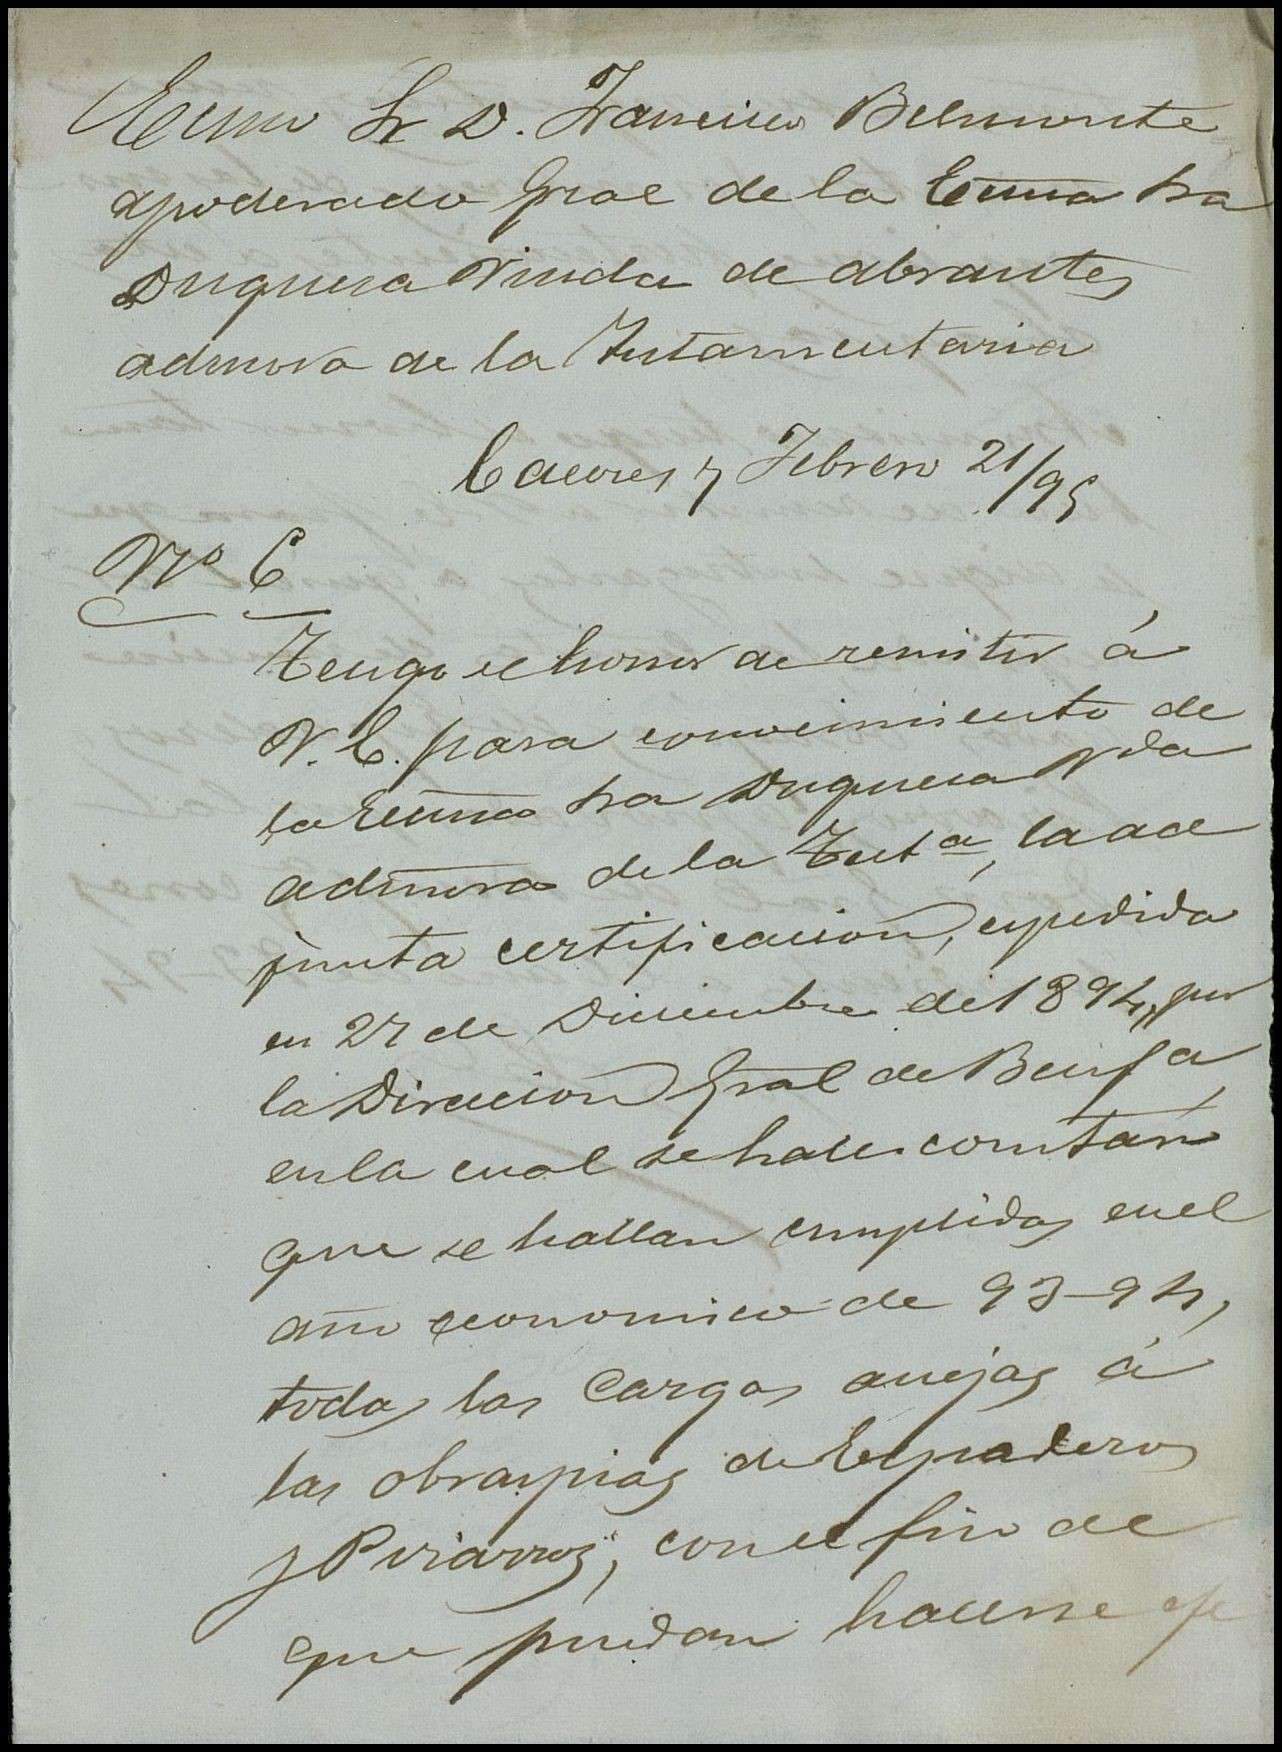 Excmo Sr D. Francisco Belmonte
apoderado Gral de la Excma Sra
Duquesa Viuda de Abrantes
admora de la Testamentaria
Caceres y Febrero 21/95
No 6
Tengo el honor de remitir á
V. E. para conocimiento de
la Excma Sra Duquesa Vda
admora de la Testa, la ad
junta certificacion, expedida
en 27 de Diciembre de 1894, por
la Direccion Gral de Benfa,
en la cual se hace constar
que se hallan cumplidas en el
año economico de 93-94,
todas las cargas anejas á
las obras pias de Espaderos
y Pizarros, con el fin de
que puedan hacerse efe